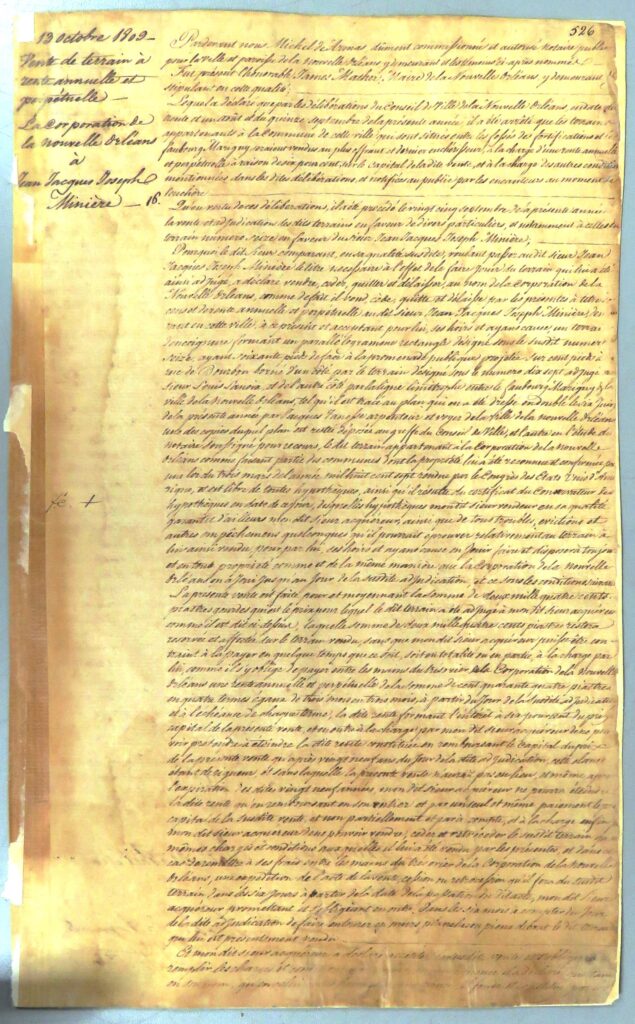 526
13 Octobre 1809
Vente de terrain à
rente annuelle et
perpétuelle
La Corporation de
la nouvelle Orléans
à
Jean Jacques Joseph
Minière 16.
fé. +
Pardevant nous Michel de Armas dûment commissionné et autorisé notaire public
pour la ville et paroisse de la nouvelle Orléans y demeurant et témoins ci après nommés
Fut présent l'honorable James Mather, Maire de la Nouvelle Orléans y demeurant
stipulant en cette qualité
Lequel a déclaré que par les délibérations du Conseil de Ville de la Nouvelle Orléans, en date du
trente et un août et du quinze septembre de la présente année, il a été arrêté que les terrains
appartenants à la Commune de cette ville qui sont situés entre les fossés des fortifications et le
faubourg Marigny seraient vendus au plus offrant et dernier enchérisseur, à la charge d'une rente annuelle
et perpétuelle à raison de six pour cent sur le capital de la dite vente, et à la charge des autres conditions
mentionnées dans les dites délibérations et notifiées au public par les encanteurs au moment de
l'enchère
Qu'en vertu de ces délibérations, il a été procédé le vingt cinq septembre de la présente année à
la vente et adjudication des dits terrains en faveur de divers particuliers, et notamment à celle du
terrain numéro seize, en faveur du sieur Jean Jacques Joseph Minière,
Pourquoi le dit sieur comparant, en sa qualité susdite, voulant passer au dit sieur Jean
Jacques Joseph Minière le titre nécessaire à l'effet de le faire jouir du terrain qui lui a été
ainsi adjugé, a déclaré vendre, céder, quitter et délaisser, au nom de la Corporation de la
Nouvelle Orléans, comme de fait il vend, cède, quitte et délaisse par les présentes à titre de
cens et de rente annuelle et perpétuelle au dit sieur Jean Jacques Joseph Minière,
en cette ville, à ce présent et acceptant pour lui, ses hoirs et ayans cause, un terrain
d'encoignure formant un parallélogramme rectangle désigné sous le susdit numéro
seize, ayant soixante pieds de face à la promenade publique projetée sur cent pieds à
rue de Bourbon borné d'un côté par le terrain désigné sous le numéro dix sept adjugé au
sieur Louis et de l'autre côté par la ligne limitrophe entre le faubourg Marigny et la
ville de la Nouvelle Orléans, tel qu'il est tracé au plan qui en a été dressé en double le six Juin
de la présente année par Jacques Tanesse arpenteur et voyer de la Ville de la nouvelle Orléans
une des copies duquel plan est restée déposée au greffe du Conseil de Ville, et l'autre en l'étude du
notaire soussigné pour recours, le dit terrain appartenant à la Corporation de la Nouvelle
Orléans comme faisant partie des communes dont la propriété lui a été reconnue et confirmée par
une loi du trois mars de l'année mil huit cent sept rendue par le Congrès des Etats Unis d'Amé-
rique, et est libre de toutes hypothèques, ainsi qu'il résulte du certificat du Conservateur des
hypothèques en date de ce jour, desquelles hypothèques mon dit sieur vendeur en sa qualité
garantit d'ailleurs mon dit sieur acquéreur, ainsi que de tous troubles, évictions et
autres empêchemens quelconques qu'il pourrait éprouver relativement au terrain à
lui ainsi vendu, pour par lui, ses hoirs et ayans cause en jouir faire et disposer toujours
et en toute propriété comme et de la même manière que la Corporation de la nouvelle
Orléans en a joui jusqu'au jour de la susdite adjudication, et ce sous les conditions suivantes
La présente vente est faite pour et moyennant la somme de deux mille quatre cents
piastres gourdes qui est le prix pour lequel le dit terrain a été adjugé à mon dit sieur acquéreur
comme il est dit ci dessus, laquelle somme de deux mille quatre cents piastres restera
réservée et affectée sur le terrain vendu, sans que mon dit sieur acquéreur puisse être con-
traint à la payer en quelque temps que ce soit, soit en totalité ou en partie, à la charge par
lui, comme il s'y oblige de payer entre les mains du trésorier de la Corporation de la Nouvelle
Orléans une rente annuelle et perpétuelle de la somme de cent quarante quatre piastres
en quatre termes égaux de trois mois en trois mois, à partir du jour de la susdite adjudication
et à l'échéance de chaque terme, la dite rente formant l'intérêt à six pour cent du prix
capital de la présente vente, et en outre à la charge par mon dit sieur acquéreur de ne pou-
voir prétendre à éteindre la dite rente constituée en remboursant le capital du prix
de la présente vente qu'après vingt neuf ans du jour de la dite adjudication, cette clause
étant de rigueur, et sans laquelle la présente vente n'aurait pas eu lieu et même après
l'expiration des dites vingt neuf années, mon dit sieur acquéreur ne pourra éteindre
la dite rente qu'en remboursant en son entier et par un seul et même paiement le
capital de la susdite vente, et non partiellement et par à compte, et à la charge enfin
mon dit sieur acquéreur de ne pouvoir vendre, céder et rétrocéder le susdit terrain qu'aux
mêmes charges et conditions auxquelles il lui a été vendu par les présentes, et dans ce
cas de remettre à ses frais entre les mains du trésorier de la Corporation de la Nouvelle
Orléans, une expédition de l'acte de la vente, cession ou rétrocession qu'il fera du susdit
terrain dans les dix jours à partir de la date de la passation du dit acte, mon dit sieur
acquéreur promettant et s'obligeant en outre dans les six mois à compter du jour
de la dite adjudication de faire entourer de murs, palissades ou pieux debout le dit terrain
qui lui est présentement vendu
Et mon dit sieur acquéreur a déclaré accepter la susdite vente et s'obliger
remplir les charges et